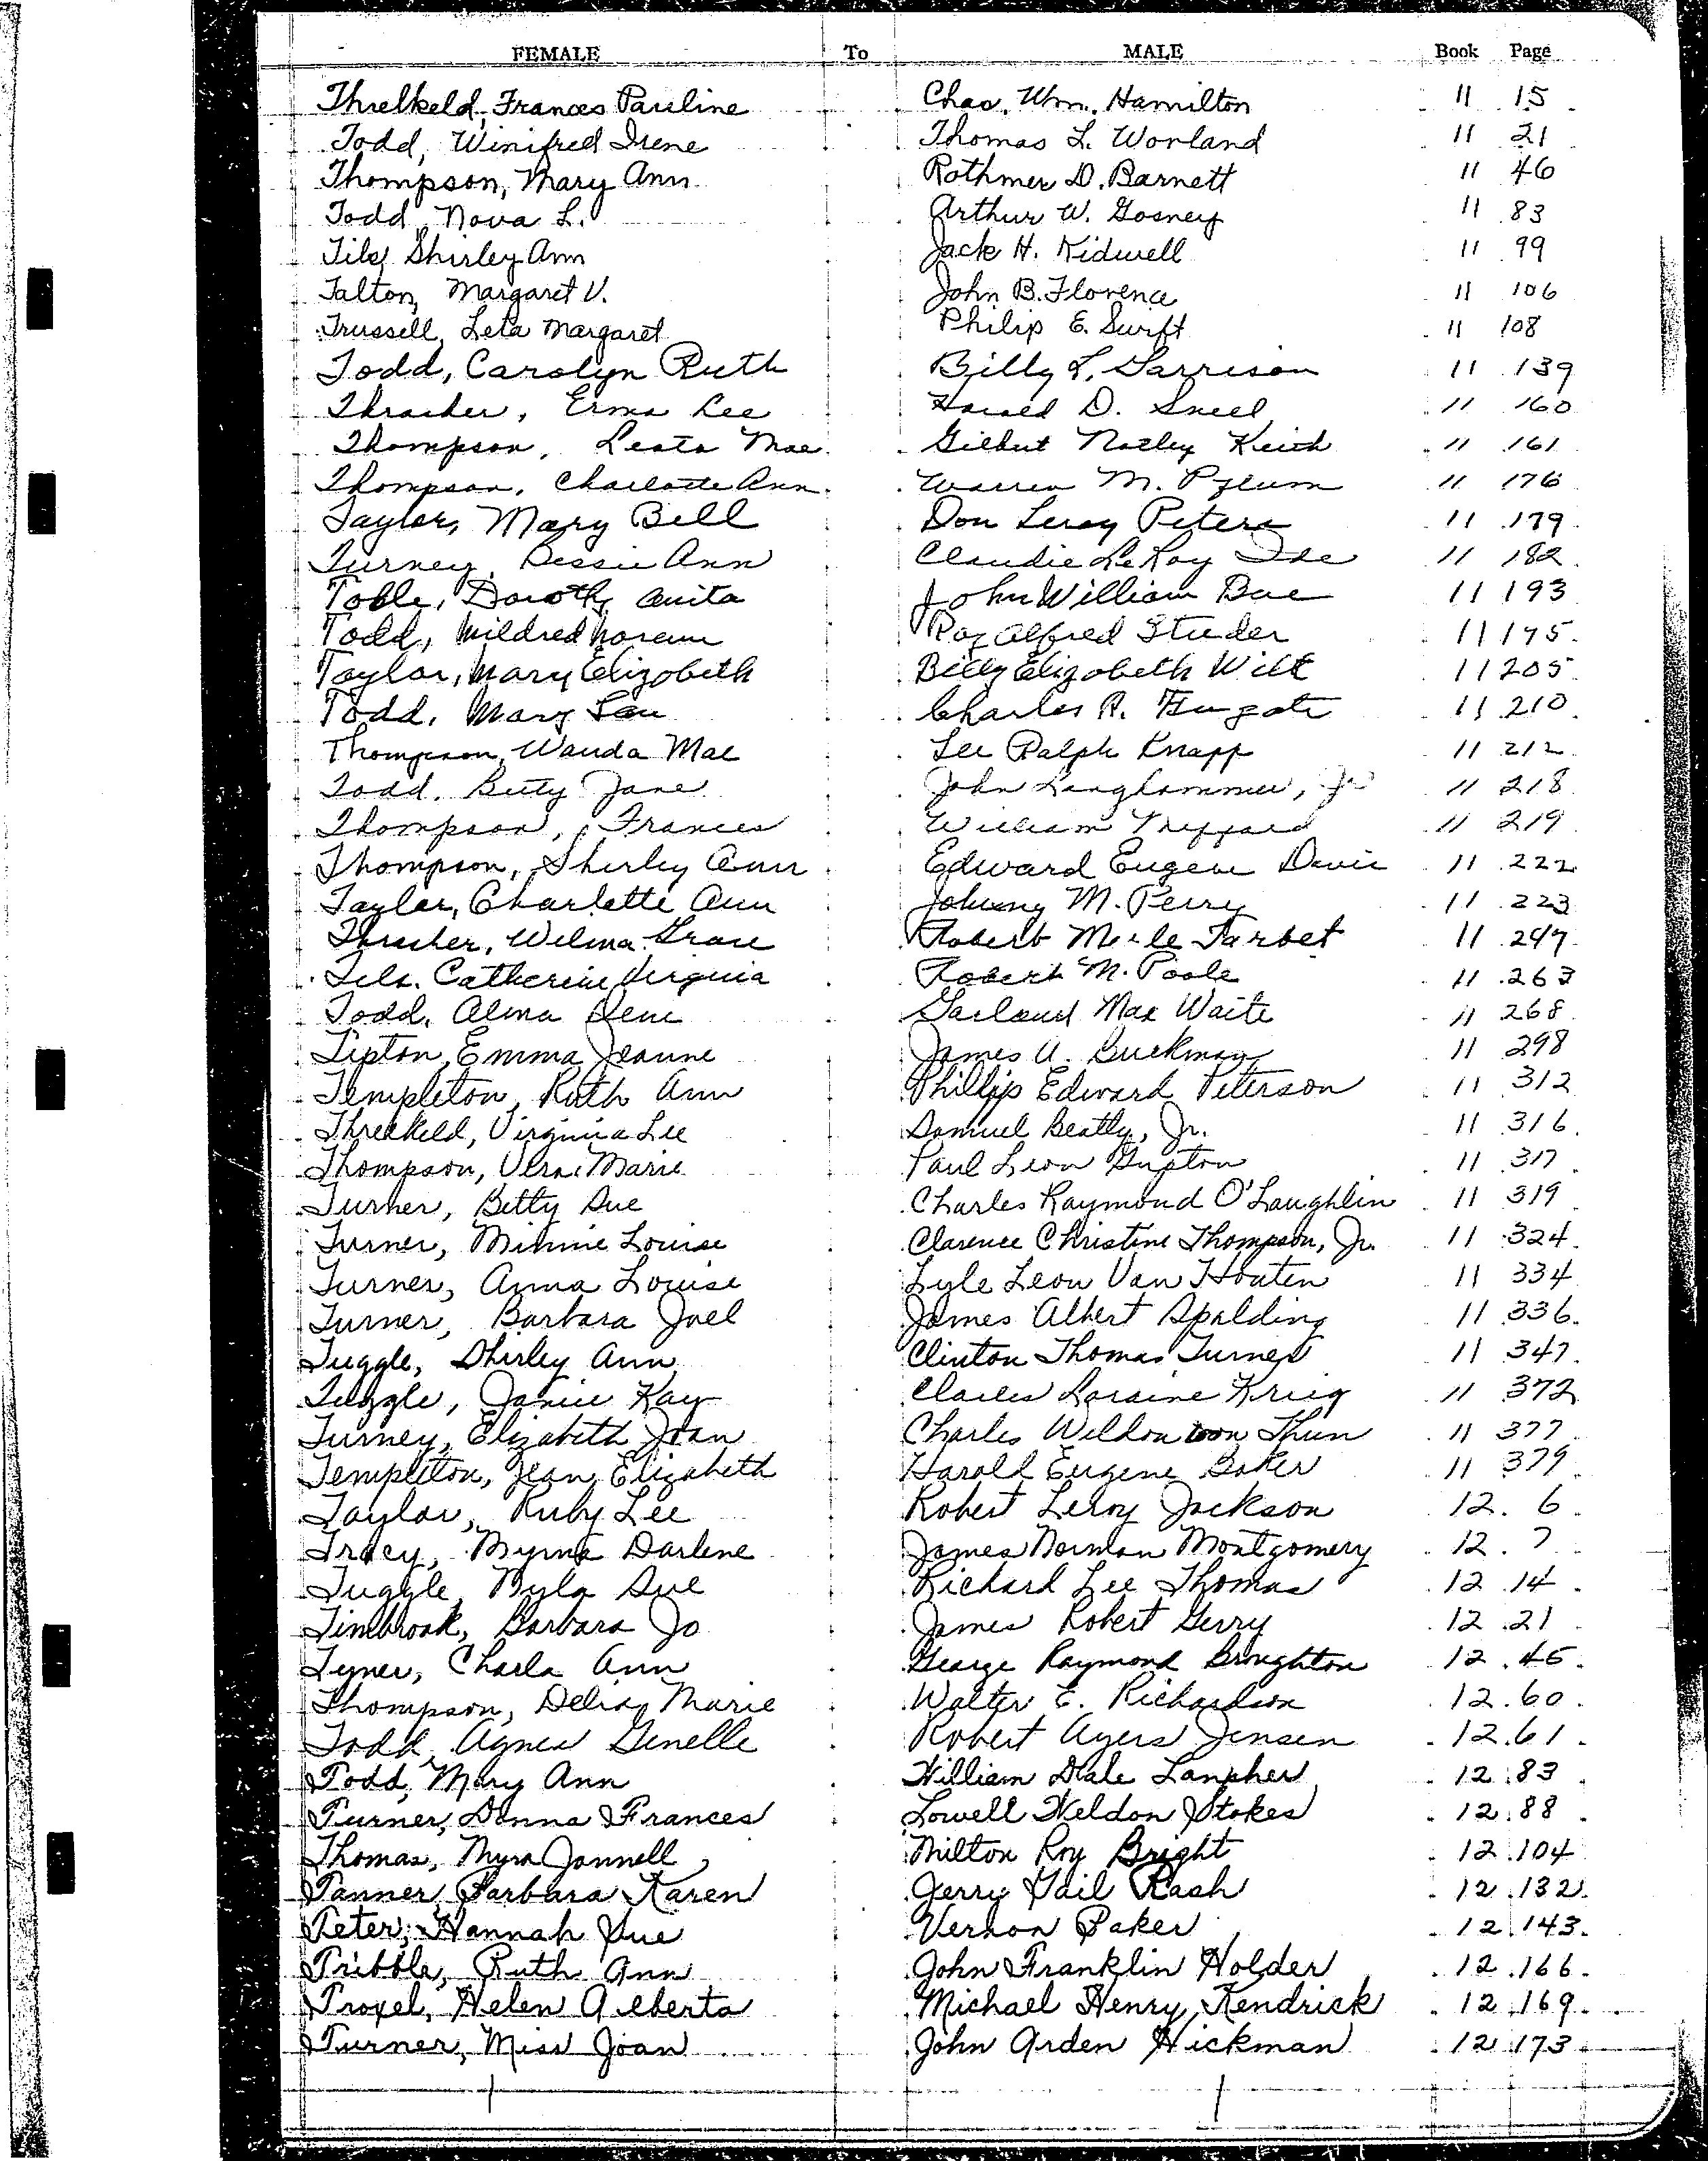 FEMALE To MALE Book Page
Threlkeld, Frances Pauline Chas. Wm. Hamilton 11 15
Todd, Winifred Irene Thomas L. Worland 11 21
Thompson, Mary Ann Rothmer D. Barnett 11 46
Todd, Nova L. Arthur W. Gosney 11 83
Shirley Ann Jack H. Kidwell 11 99
Talton, Margaret V. John B. Florence 11 106
Trussell, Leta Margaret Philip E. Swift 11 108
Todd, Carolyn Ruth Billy L. Garrison 11 139
Thrasher, Erma Lee Harold D. Sneed 11 160
Thompson, Leata Mae Gilbert Notley Keith 11 161
Thompson, Charlotte Ann Warren M. 11 176
Taylor, Mary Bell Don Leroy Peters 11 179
Turney, Bessie Ann Claudie LeRoy 11 182
Toble, Dorothy Anita John William 11 193
Todd, Mildred Roy Alfred Studer 11 195
Taylor, Mary Elizabeth Billy Elizabeth Wilt 11 205
Todd, Mary Lou Charles R. Fugate 11 210
Thompson, Wanda Mae Lee Ralph Knapp 11 212
Todd, Betty Jane John Langhammer, Jr 11 218
Thompson, Frances William 11 219
Thompson, Shirley Ann Edward Eugene Davis 11 222
Taylor, Charlotte Ann Johnny M. Perry 11 223
Thrasher, Wilma Grace Robert Merle Tarbet 11 247
Catherine Virginia Robert M. Poole 11 263
Todd, Alma Garland Max Waite 11 268
Tipton, Emma Jeanne James A. Buckman 11 298
Templeton, Ruth Ann Phillip Edward Peterson 11 312
Threlkeld, Virginia Lee Samuel Beatty, Jr. 11 316
Thompson, Vera Marie Paul Leon Gupton 11 317
Turner, Betty Sue Charles Raymond O'Laughlin 11 319
Turner, Minnie Louise Clarence Christine Thompson, Jr. 11 324
Turner, Anna Louise Lyle Leon Van Houten 11 334
Turner, Barbara Joel James Albert Spalding 11 336
Tuggle, Shirley Ann Clinton Thomas Turner 11 347
Tuggle, Janice Kay Charles Loraine Krieg 11 372
Turney, Elizabeth Joan Charles Weldon von Thun 11 377
Templeton, Jean Elizabeth Harold Eugene Baker 11 379
Taylor, Ruby Lee Robert Leroy Jackson 12 6
Tracy, Myrna Darlene James Norman Montgomery 12 7
Tuggle, Nyla Sue Richard Lee Thomas 12 14
Timbrook, Barbara Jo James Robert Gerry 12 21
Tyner, Charla Ann George Raymond Broughton 12 45
Thompson, Delray Marie Walter E. Richardson 12 60
Todd, Agnes Genelle Robert Ayers Jensen 12 61
Todd, Mary Ann William Dale Lanpher 12 83
Turner, Donna Frances Lowell Weldon Stokes 12 88
Thomas, Myra Jannell Milton Roy Bright 12 104
Tanner, Barbara Karen Jerry Gail Rash 12 132
Teter, Hannah Sue Vernon Baker 12 143
Tribble, Ruth Ann John Franklin Holder 12 166
Troxel, Helen Alberta Michael Henry Kendrick 12 169
Turner, Miss Joan John Arden Hickman 12 173